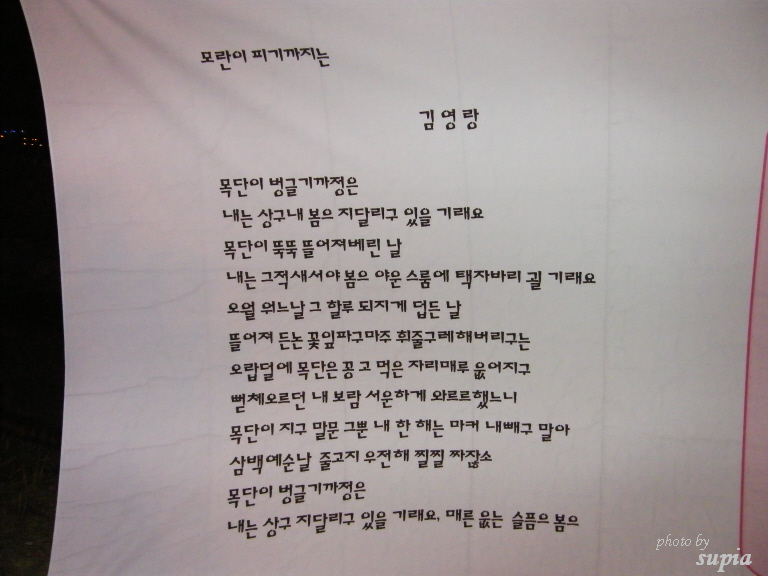 모란이 피기까지는
김영랑
목단이 벙글기까정은
내는 상구내 봄으 지달리구 있을 기래요
목단이 뚝뚝 뜰어져베린 날
내는 그적새서야 봄으 야운 스룸에 택자바리 괼 기래요
오월 워느날 그 할루 되지게 덥든 날
뜰어져 든논 꽃잎파구마주 휘줄구레해버리구는
오랍덜에 목단은 꽁고 먹은 자리매루 읎어지구
뻗체오르던 내 보람 서운하게 와르르했느니
목단이 지구 말문 그뿐 내 한 해는 마커 내빼구 말아
삼백예순날 줄고지 우전해 찔찔 짜잖소
목단이 벙글기까정은
내는 상구 지달리구 있을 기래요, 매른 읎는 슬픔으 봄으
photo by
supia